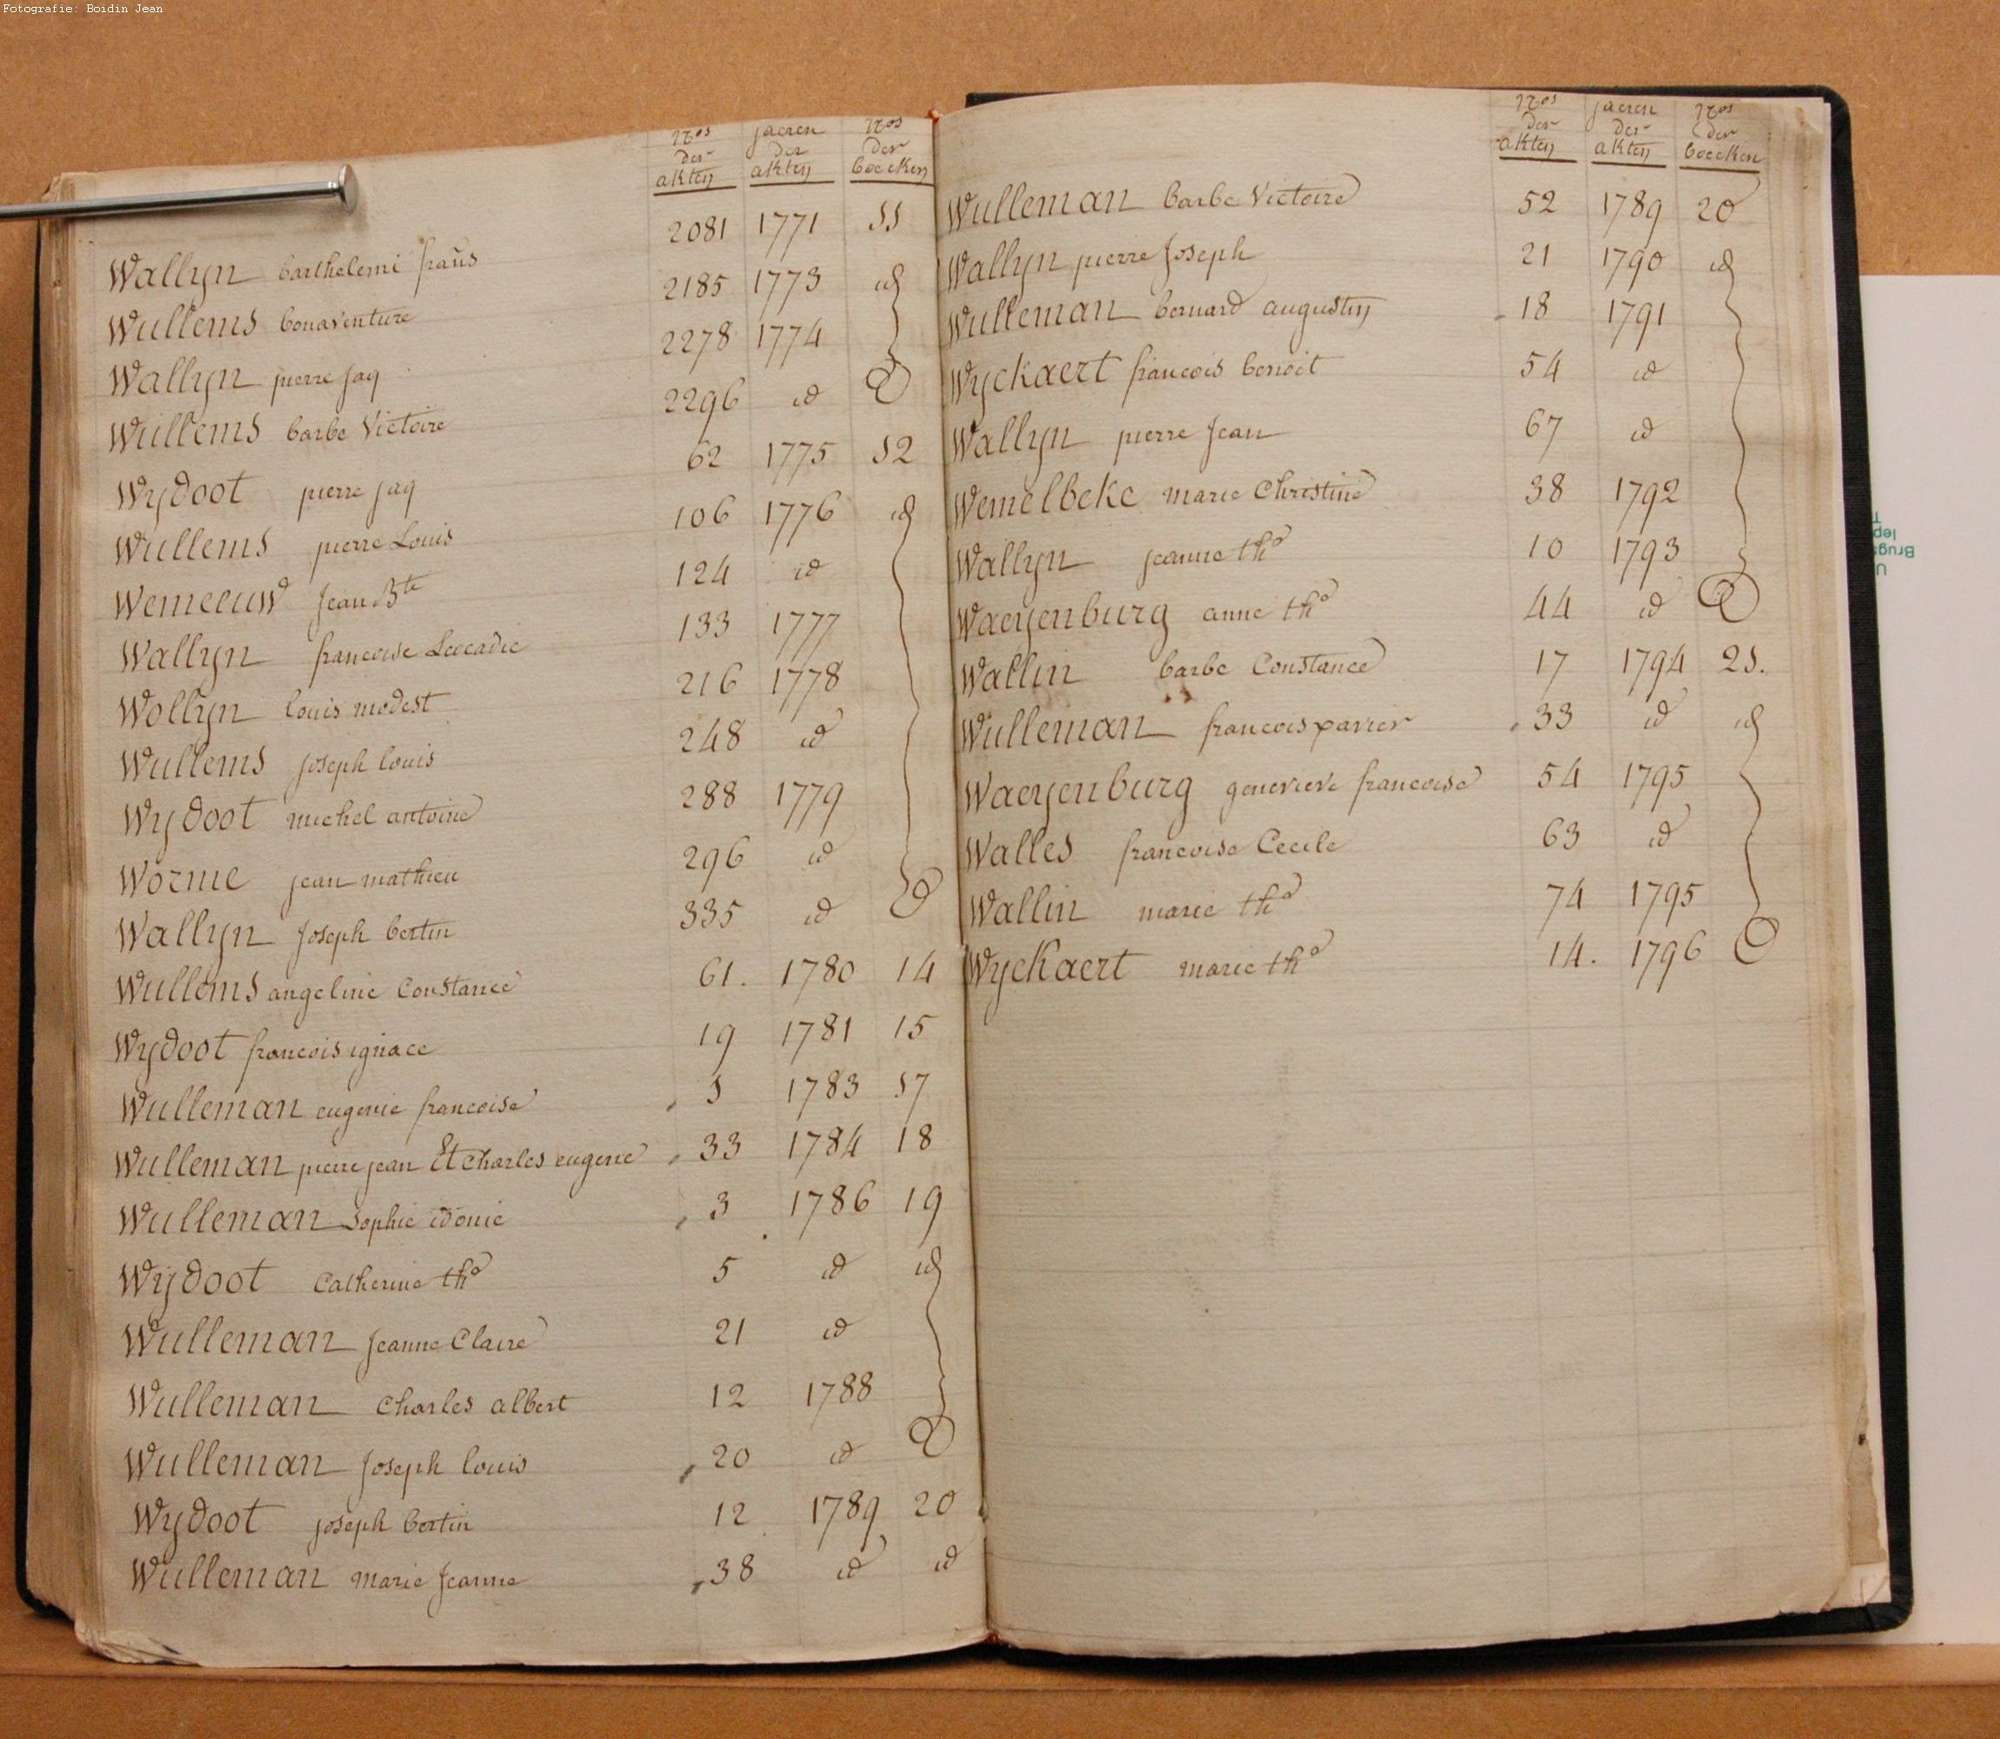 Fotografie: Boidin Jean
Nos der akten jaeren der akten Nos der boecken
Wallyn barthelemi frans 2081 1771 11
Wullems bonaventure 2185 1773 id
Wallyn pierre jaq 2278 1774
Wullems barbe Victoire 2296 id
Wydoot pierre jaq 62 1775 12
Wullems pierre Louis 106 1776 id
Wemeeuw Jean Bte 124 id
Wallyn francoise Leocadie 133 1777
Wollyn louis modest 216 1778
Wullems joseph louis 248 id
Wydoot michel antoine 288 1779
Worme jean mathieu 296 id
Wallyn joseph bertin 335 id
Wullems angeline Constance 61. 1780 14
Wydoot francois ignace 19 1781 15
Wulleman eugenie francoise 1 1783 17
Wulleman pierre jean Et charles eugene 33 1784 18
Wulleman Sophie idonie 3 1786 19
Wydoot Catherine tha 5 id id
Wulleman Jeanne Claire 21 id
Wulleman Charles albert 12 1788
Wulleman Joseph louis 20 id
Wydoot joseph bertin 12 1789 20
Wulleman marie Jeanne 38 id id
Nos der akten jaeren der akten Nos der boecken
Wulleman barbe Victoire 52 1789 20
Wallyn pierre Joseph 21 1790 id
Wulleman bernard augustin 18 1791
Wyckaert francois benoit 54 id
Wallyn pierre Jean 67 id
Wemelbeke marie Christine 38 1792
Wallyn jeanne tha 10 1793
Waeyenburg anne tha 44 id
Wallin barbe Constance 17 1794 21.
Wulleman francois xavier 33 id id
Waeyenburg genevieve francoise 54 1795
Walles francoise Cecile 63 id
Wallin marie tha 74 1795
Wyckaert marie tha 14. 1796